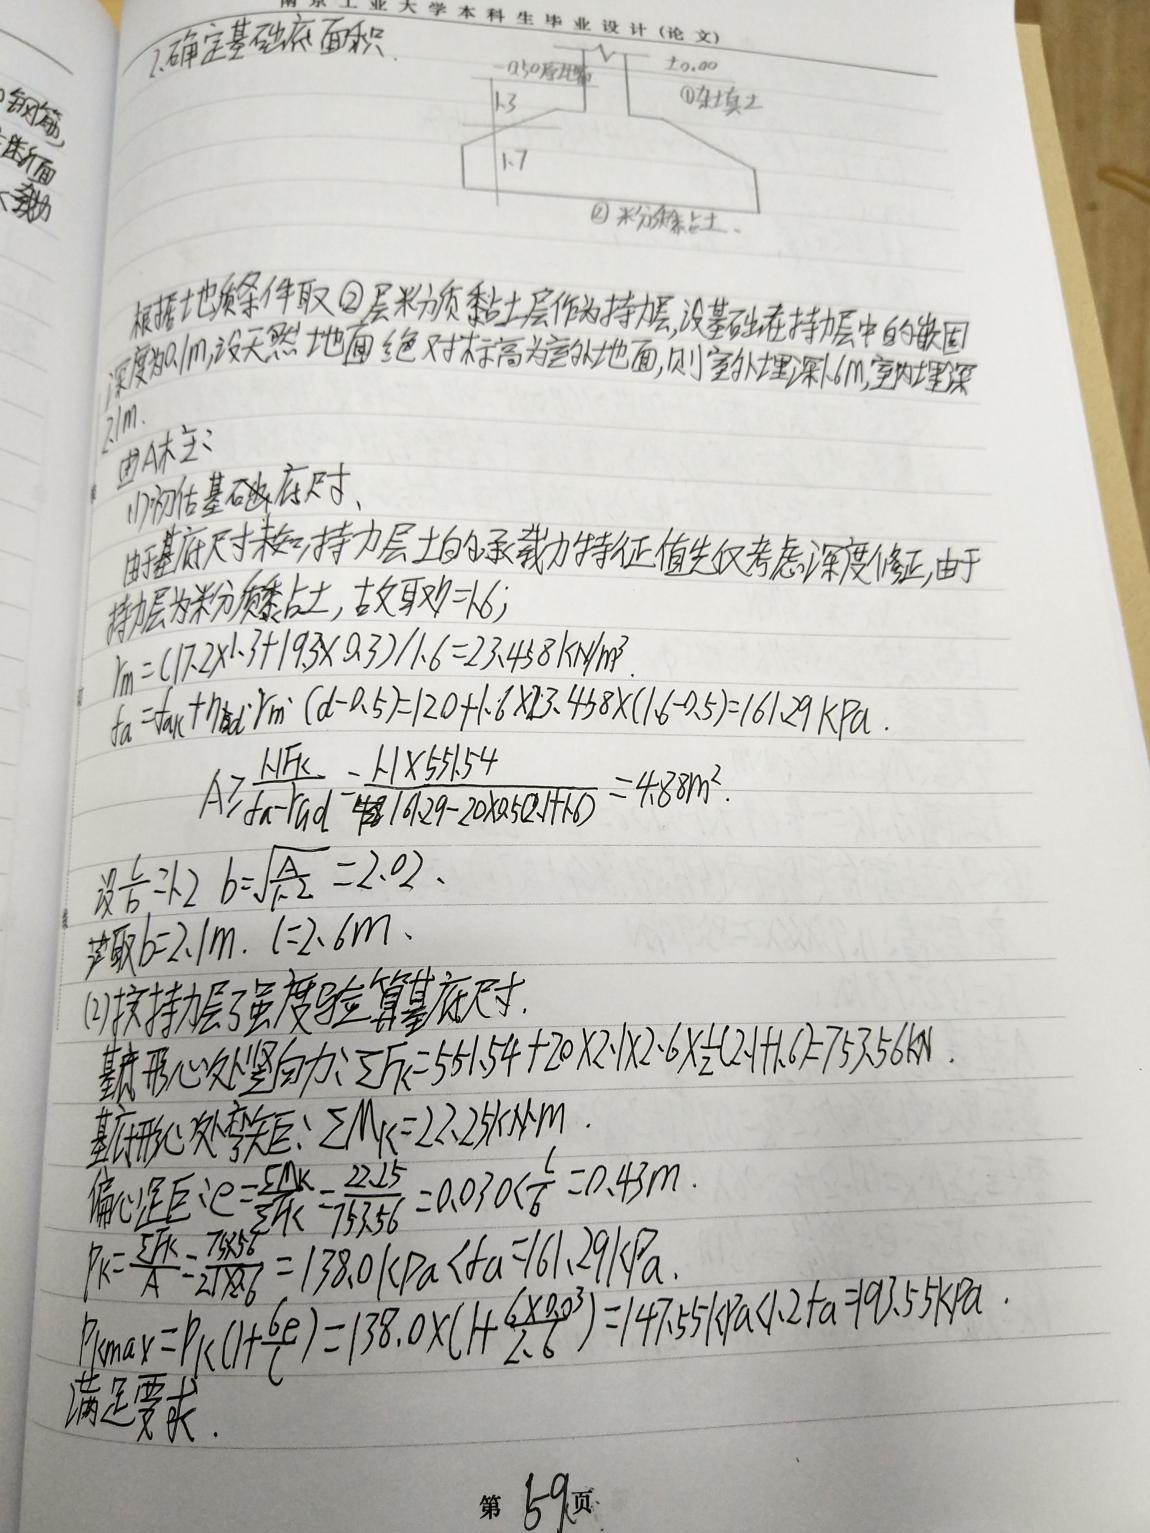 南京工业大学本科生毕业设计(论文)
2.确定基础底面积.
±0.00
①杂填土
1.3
1.7
②粉质黏土.
钢筋,
断面
根据地质条件取②层粉质黏土层作为持力层,设基础在持力层中的嵌固
深度为0.1m,设天然地面绝对标高为室外地面,则室外埋深1.6m,室内埋深
2.1m.
由A柱:
(1)初估基础底尺寸、
由于基底尺寸未知,持力层土的承载力特征值先仅考虑深度修正,由于
持力层为粉质黏土,故取η=1.6;
rm=(17.2×1.3+19.3×0.3)/1.6=23.458KN/m³.
fa=fak+ηd·rm·(d-0.5)=120+1.6×23.458×(1.6-0.5)=161.29KPa.
A≥1.1Fk/(fa-rGd)=1.1×551.54/(161.29-20×0.5(2.1+1.6))=4.88m².
设l/b=1.2 b=√(A/1.2)=2.02、
取b=2.1m. l=2.6m、
(2)按持力层强度验算基底尺寸.
基底形心处竖向力:ΣFk=551.54+20×2.1×2.6×½(2.1+1.6)=753.56KN.
基底形心处弯矩:ΣMk=22.25KN·m.
偏心距:e=ΣMk/ΣFk=22.25/753.56=0.030<l/6=0.43m.
Pk=ΣFk/A=753.56/2.1×2.6=138.0KPa<fa=161.29KPa.
Pkmax=Pk(1+6e/l)=138.0×(1+6×0.03/2.6)=147.55KPa<1.2fa=193.55KPa.
满足要求.
第59页